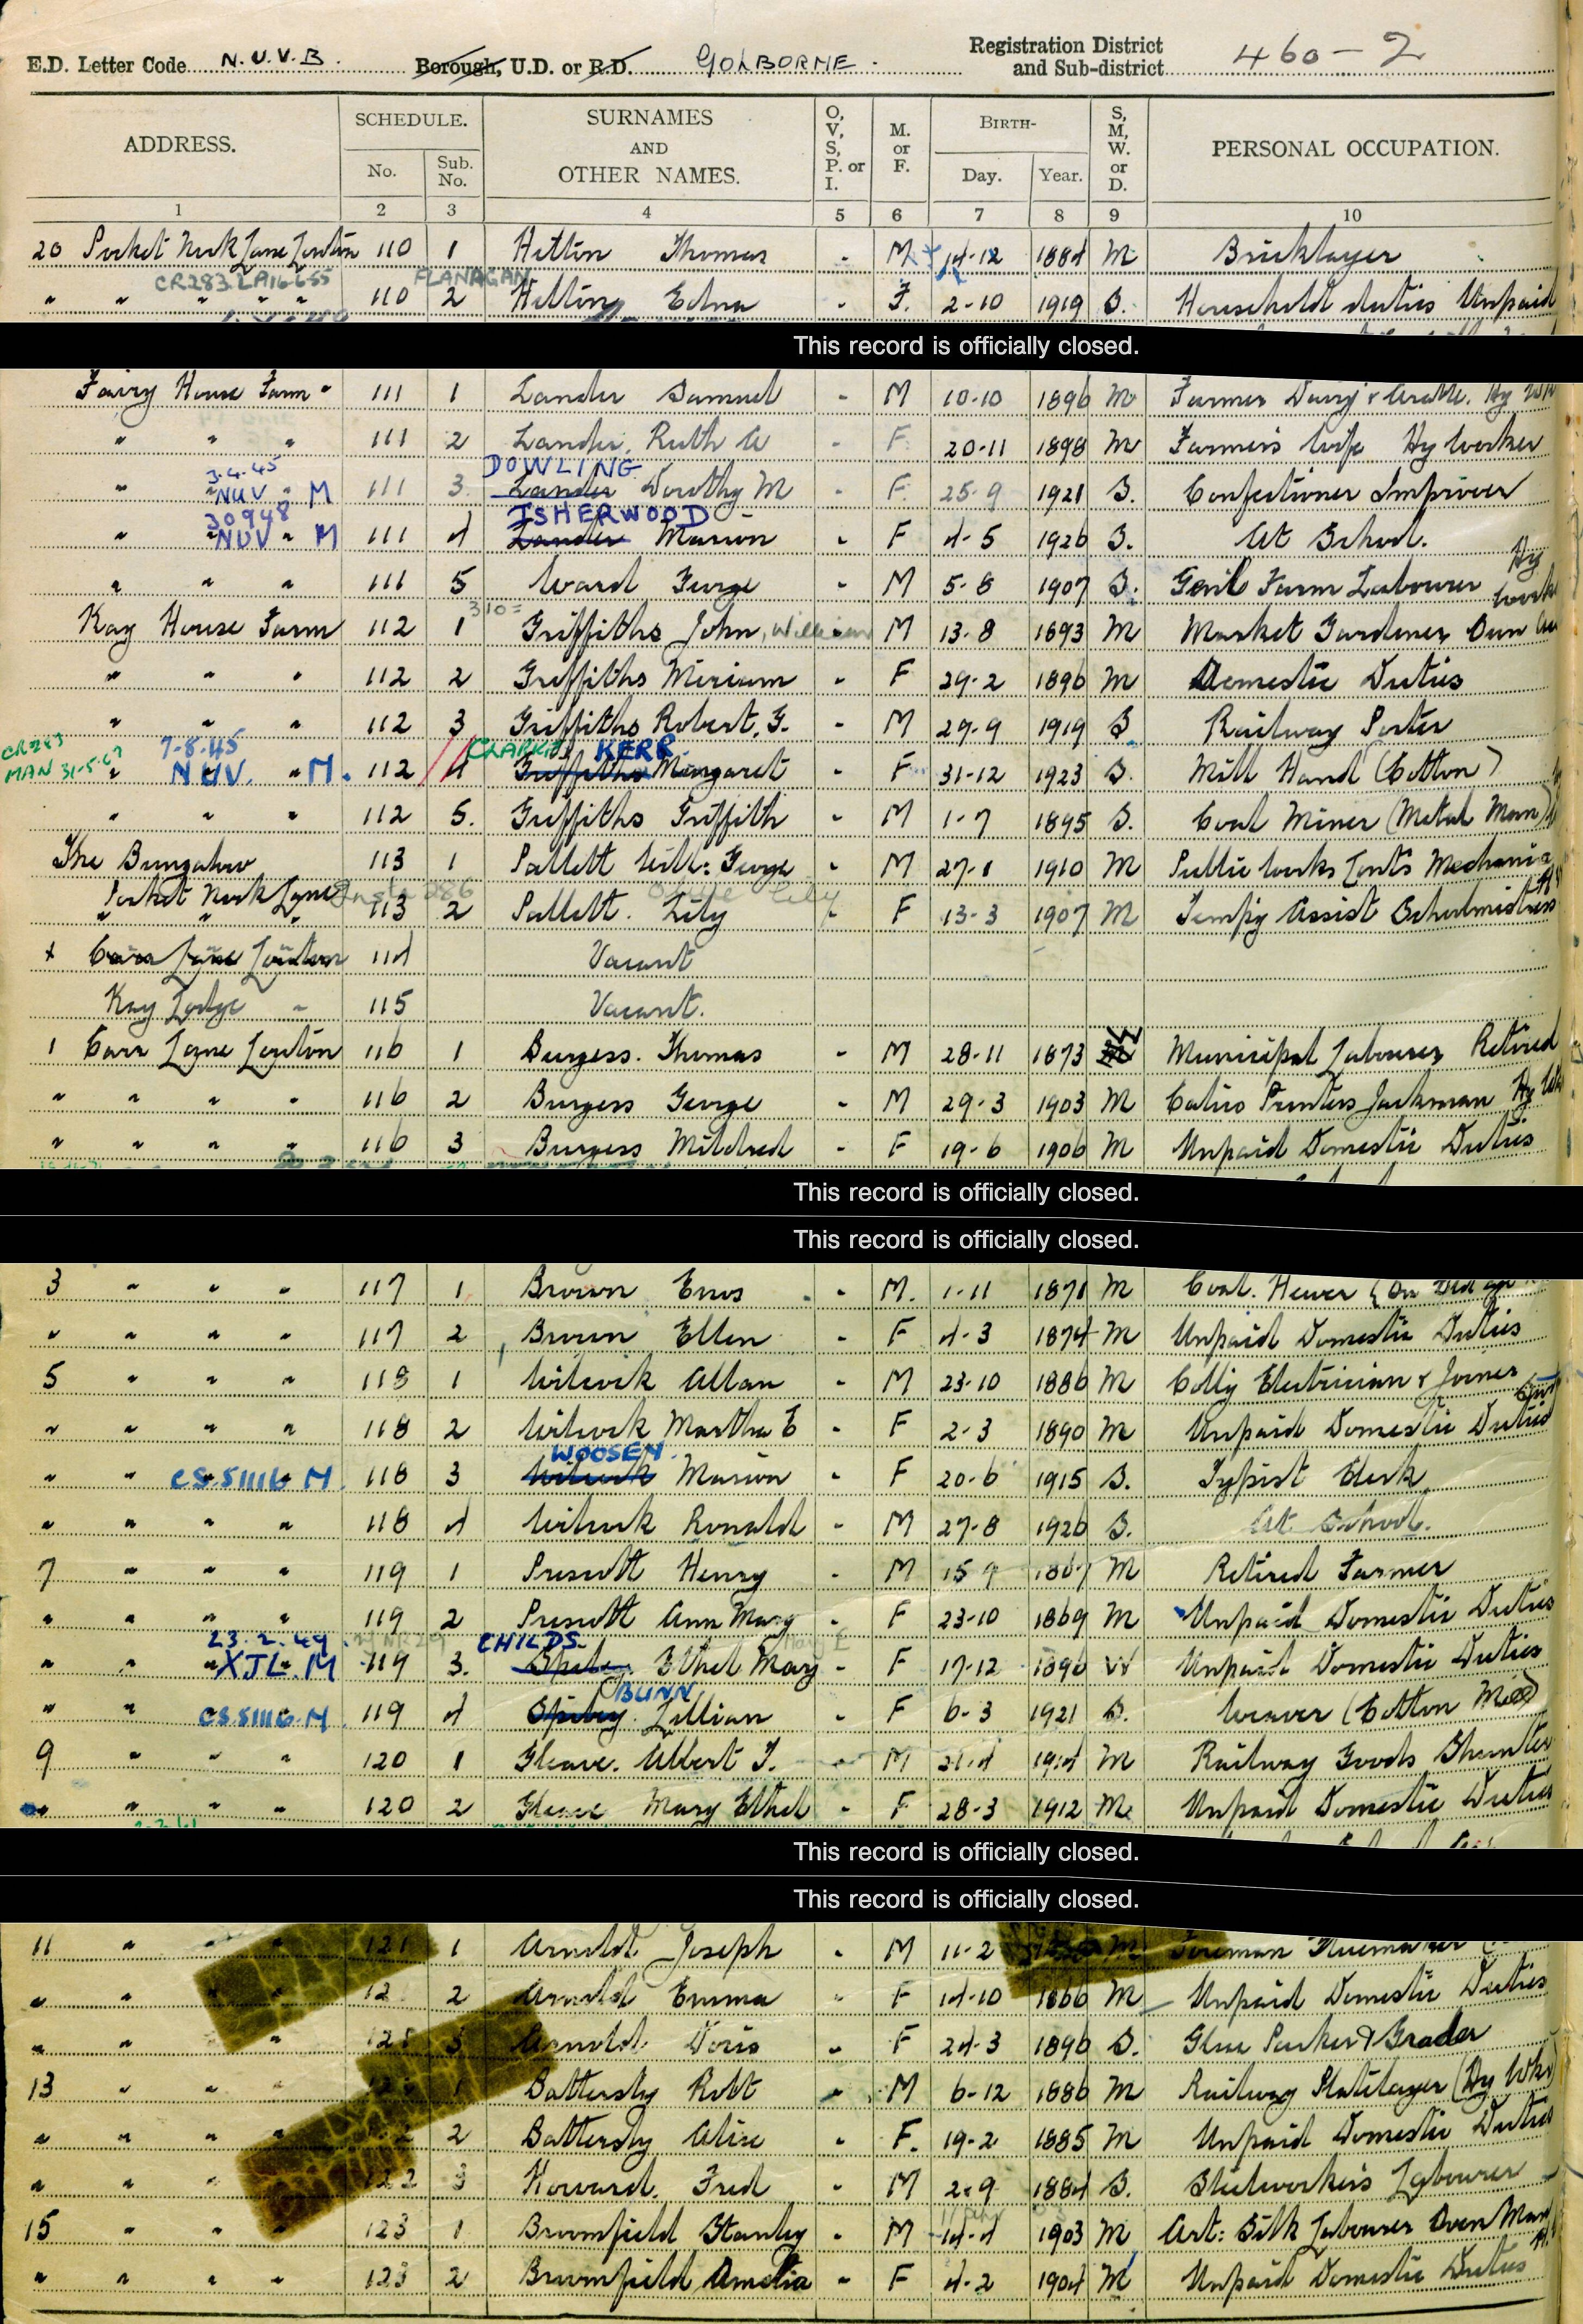 E.D. Letter Code N.U.V.B. Borough, U.D. or R.D. GOLBORNE. Registration District and Sub-district 460-2
ADDRESS. SCHEDULE. No. Sub. No. SURNAMES AND OTHER NAMES. O, V, S, P. or I. M. or F. BIRTH- Day. Year. S, M, W. or D. PERSONAL OCCUPATION.
1 2 3 4 5 6 7 8 9 10
20 Pocket Nook Lane Lowton 110 1 Hilton Thomas - M 14-12 1884 M Bricklayer
CR283 FLANAGAN
" " " " 110 2 Hilton Edna - F. 2-10 1919 S. Household duties Unpaid
This record is officially closed.
Fairy House Farm " 111 1 Lander Samuel - M 10-10 1896 M Farmer Dairy & Arable. Hy
" " " 111 2 Lander, Ruth A - F 20-11 1898 M Farmers Wife Hy Worker
3.4.45 DOWLING
" NUV " M 111 3 Lander Dorothy M - F. 25-9 1921 S. Confectioner Improver
30948 ISHERWOOD
" NUV " M 111 4 Lander Marion - F 4-5 1926 S. At School.
" " " 111 5 Ward George - M 5-8 1907 S. Genl Farm Labourer Hy Work
Kay House Farm 112 1 Griffiths John, William M 13-8 1893 M Market Gardener Own
" " " 112 2 Griffiths Miriam - F 29-2 1896 M Domestic Duties
" " " 112 3 Griffiths Robert. G. - M 29-9 1919 S Railway Porter
CR283 7-8-45 CLARKE KERR.
MAN 31-5-67 " NUV. " M. 112 4 Griffiths Margaret - F 31-12 1923 S. Mill Hand (Cotton)
" " " 112 5. Griffiths Griffith - M 1-7 1895 S. Coal Miner (Metal Man)
The Bungalow 113 1 Pallett Will: George - M 27-1 1910 M Public Works Conts Mechanic
Pocket Nook Lane 113 2 Pallett. Lily - F 13-3 1907 M Tempy Assist Schoolmistress
+ Carr Lane Lowton 114 Vacant
Kay Lodge " 115 Vacant.
1 Carr Lane Lowton 116 1 Burgess. Thomas - M 28-11 1873 Municipal Labourer Retired
" " " " 116 2 Burgess George - M 29-3 1903 M Calico Printers Jackman Hy
" " " " 116 3 Burgess Mildred - F 19-6 1906 M Unpaid Domestic Duties
This record is officially closed.
This record is officially closed.
3 " " " 117 1 Brown Enos - M. 1-11 1871 M Coal. Hewer
" " " " 117 2 Brown Ellen - F 4-3 1874 M Unpaid Domestic Duties
5 " " " 118 1 Wilcock Allan - M 23-10 1886 M Colly Electrician & Joiner
" " " " 118 2 Wilcock Martha E - F 2-3 1890 M Unpaid Domestic Duties
WOOSEY.
" " CS.51116 M. 118 3 Wilcock Marion - F 20-6 1915 S. Typist Clerk
" " " " 118 4 Wilcock Ronald - M 27-8 1926 S. At School.
7 " " " 119 1 Prescott Henry - M 15-9 1867 M Retired Farmer
" " " " 119 2 Prescott Ann Mary - F 23-10 1869 M Unpaid Domestic Duties
23.2.49 CHILDS.
" " XJL. M 119 3. Ethel Mary - F 17-12 1896 W Unpaid Domestic Duties
BUNN
" " CS.51116.M. 119 4 Lillian - F 6-3 1921 S. Weaver (Cotton
9 " " " 120 1 Gleave. Albert T. - M 21-4 1914 M Railway Goods Shunter
" " " " 120 2 Gleave Mary Ethel - F 28-3 1912 M. Unpaid Domestic Duties
This record is officially closed.
This record is officially closed.
11 " " 121 1 Arnold. Joseph - M 11-2 M Foreman Gluemaker
" " " 12 2 Arnold Emma - F 14-10 1866 M Unpaid Domestic Duties
" " " 3 Arnold. Doris - F 24-3 1896 S. Glue Packer & Grader
13 " " " 1 Battersby Robt - M 6-12 1886 M Railway Platelayer (Hy Wkr)
" " " " 2 Battersby Alice - F. 19-2 1885 M Unpaid Domestic Duties
" " " 122 3 Howard. Fred - M 2-9 1884 S. Steelworkers Labourer
15 " " " 123 1 Broomfield Stanley - M 14-4 1903 M Art: Silk Labourer Oven Man
" " " " 123 2 Broomfield Amelia - F 4-2 1904 M Unpaid Domestic Duties